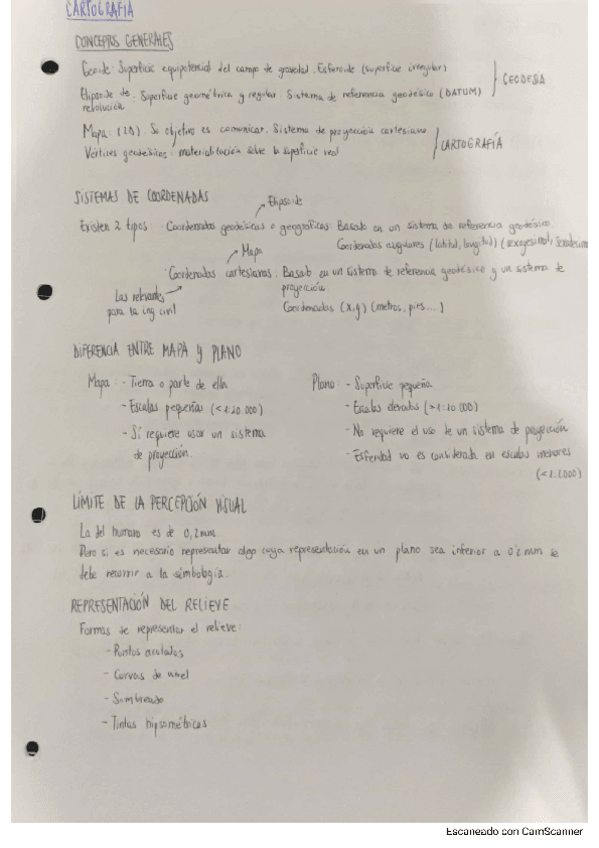 CARTOGRAFIA
CONCEPTOS GENERALES
Geoide: Superficie equipotencial del campo de gravedad. Esferoide (superficie irregular)
Elipsoide de revolución: Superficie geométrica y regular. Sistema de referencia geodésico (DATUM)
GEODESIA
Mapa: (2D). Su objetivo es comunicar. Sistema de proyección cartesiano
Vértices geodésicos: materialización sobre la superficie real
CARTOGRAFÍA
SISTEMAS DE COORDENADAS
Elipsoide
Existen 2 tipos: · Coordenadas geodésicas o geográficas: Basado en un sistema de referencia geodésico.
Coordenadas angulares (latitud, longitud) (sexagesimal,
Mapa
· Coordenadas cartesianas: Basado en un sistema de referencia geodésico y un sistema de
proyección
Las relevantes
para la ing. civil
Coordenadas (x,y) (metros, pies...)
DIFERENCIA ENTRE MAPA y PLANO
Mapa: - Tierra o parte de ella
- Escalas pequeñas (<1:10.000)
- Sí requiere usar un sistema
de proyección.
Plano: - Superficie pequeña.
- Escalas elevadas (>1:10.000)
- No requiere el uso de un sistema de proyección
- Esfericidad no es considerada en escalas menores
(<1:1.000)
LÍMITE DE LA PERCEPCIÓN VISUAL
La del humano es de 0,2mm.
Pero si es necesario representar algo cuya representación en un plano sea inferior a 0'2 mm se
debe recurrir a la simbología.
REPRESENTACIÓN DEL RELIEVE
Formas de representar el relieve:
- Puntos acotados
- Curvas de nivel
- Sombreado
- Tintas hipsométricas
Escaneado con CamScanner